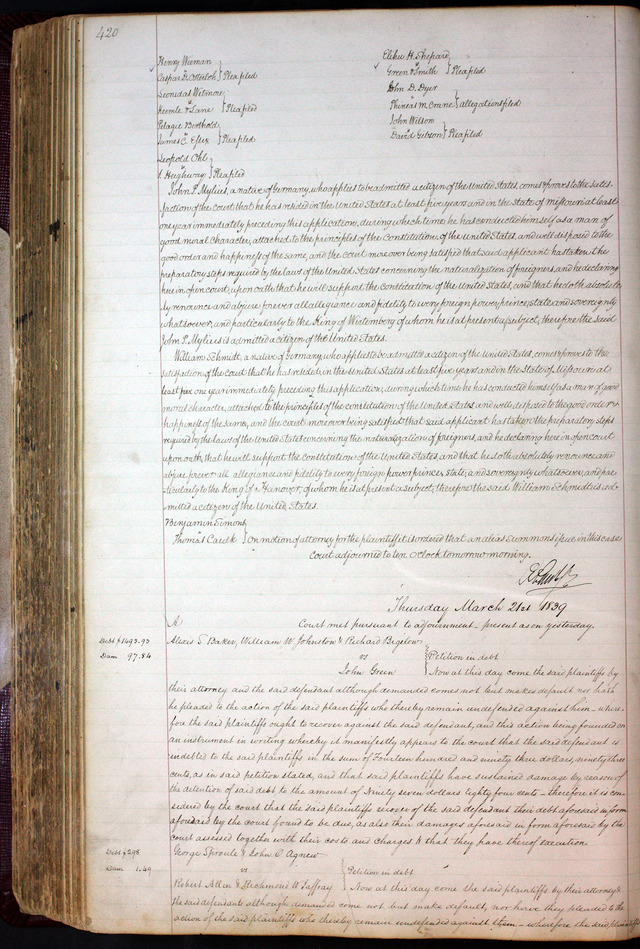 420
Henry Wieman
Caspar D. Otterloh } Plea filed
Leonidas Wetmore
Keemle & Lane } Plea filed
Pelagie Berthold
James C. Essex } Plea filed
Leopold Ohl
S. Heighway } Plea filed
Elihu H. Shepard
Green & Smith } Plea filed
John D. Dyer
Phineas M. Crane } allegations filed
John Wilson
David Gibson } Plea filed
John P. Mylius, a native of Germany, who applies to be admitted a citizen of the United States, comes & proves to the satis-
faction of the court that he has resided in the United States at least five years and in the State of Missouri at least
one year immediately preceding this application, during which time he has conducted himself as a man of
good moral character, attached to the principles of the Constitution of the United States, and well disposed to the
good order and happiness of the same, and the court moreover being satisfied that said applicant has taken the
preparatory steps required by the laws of the United States concerning the naturalization of foreigners and he declaring
here in open court, upon oath that he will support the Constitution of the United States, and that he doth absolute-
ly renounce and abjure forever all allegiance and fidelity to every foreign power prince, state and sovereignty
whatsoever, and particularly to the King of Wirtemberg of whom he is at present a subject, therefore the said
John P. Mylius is admitted a citizen of the United States.
William Schmidt, a native of Germany, who applies to be admitted a citizen of the United States, comes & proves to the
satisfaction of the Court that he has resided in the United States at least five years and in the State of Missouri at
least one year immediately preceding this application, during which time he has conducted himself as a man of good
moral character, attached to the principles of the constitution of the United States and well disposed to the good order &
happiness of the same, and the court moreover being satisfied that said applicant has taken the preparatory steps
required by the laws of the United States concerning the naturalization of foreigners, and he declaring here in open court
upon oath, that he will support the constitution of the United States and that he doth absolutely renounce and
abjure forever all allegiance and fidelity to every foreign power prince, state, and sovereignty whatsoever, and par-
ticularly to the King of Hanover, of whom he is at present a subject, therefore the said William Schmidt is ad-
mitted a citizen of the United States.
Benjamin Timons
Thomas Caulk } On motion of attorney for the plaintiff it is ordered that an alias summons issue in this case
Court adjourned to ten o'clock tomorrow morning.
Thursday March 21st 1839
Court met pursuant to adjournment - present as on yesterday.
Debt $1493.93
Dam 97.84
Alexis S. Baker, William W Johnston & Richard Bigelow
vs } Petition in debt
John Green } Now at this day come the said plaintiffs by
their attorney and the said defendant although demanded comes not but makes default nor hath
he pleaded to the action of the said plaintiffs who thereby remain undefended against him - where-
fore the said plaintiffs ought to recover against the said defendant, and this action being founded on
an instrument in writing whereby it manifestly appears to the court that the said defendant is
indebted to the said plaintiffs in the sum of Fourteen hundred and ninety three dollars, ninety three
cents, as in said petition stated, and that said plaintiffs have sustained damage by reason of
the detention of said debt to the amount of Ninety seven dollars eighty four cents - therefore it is con-
sidered by the court that the said plaintiffs recover of the said defendant their debt aforesaid in form
aforesaid by the court found to be due, as also their damages aforesaid in form aforesaid by the
court assessed together with their costs and charges & that they have thereof execution
Debt $298
Dam 1.49
George Sproule & John C. Agnew
vs } Petition in debt
Robert Allen & Richmond W Jaffray } Now at this day come the said plaintiffs by their attorney &
the said defendants although demanded come not but make default, nor have they pleaded to the
action of the said plaintiffs who thereby remain undefended against them - wherefore the said